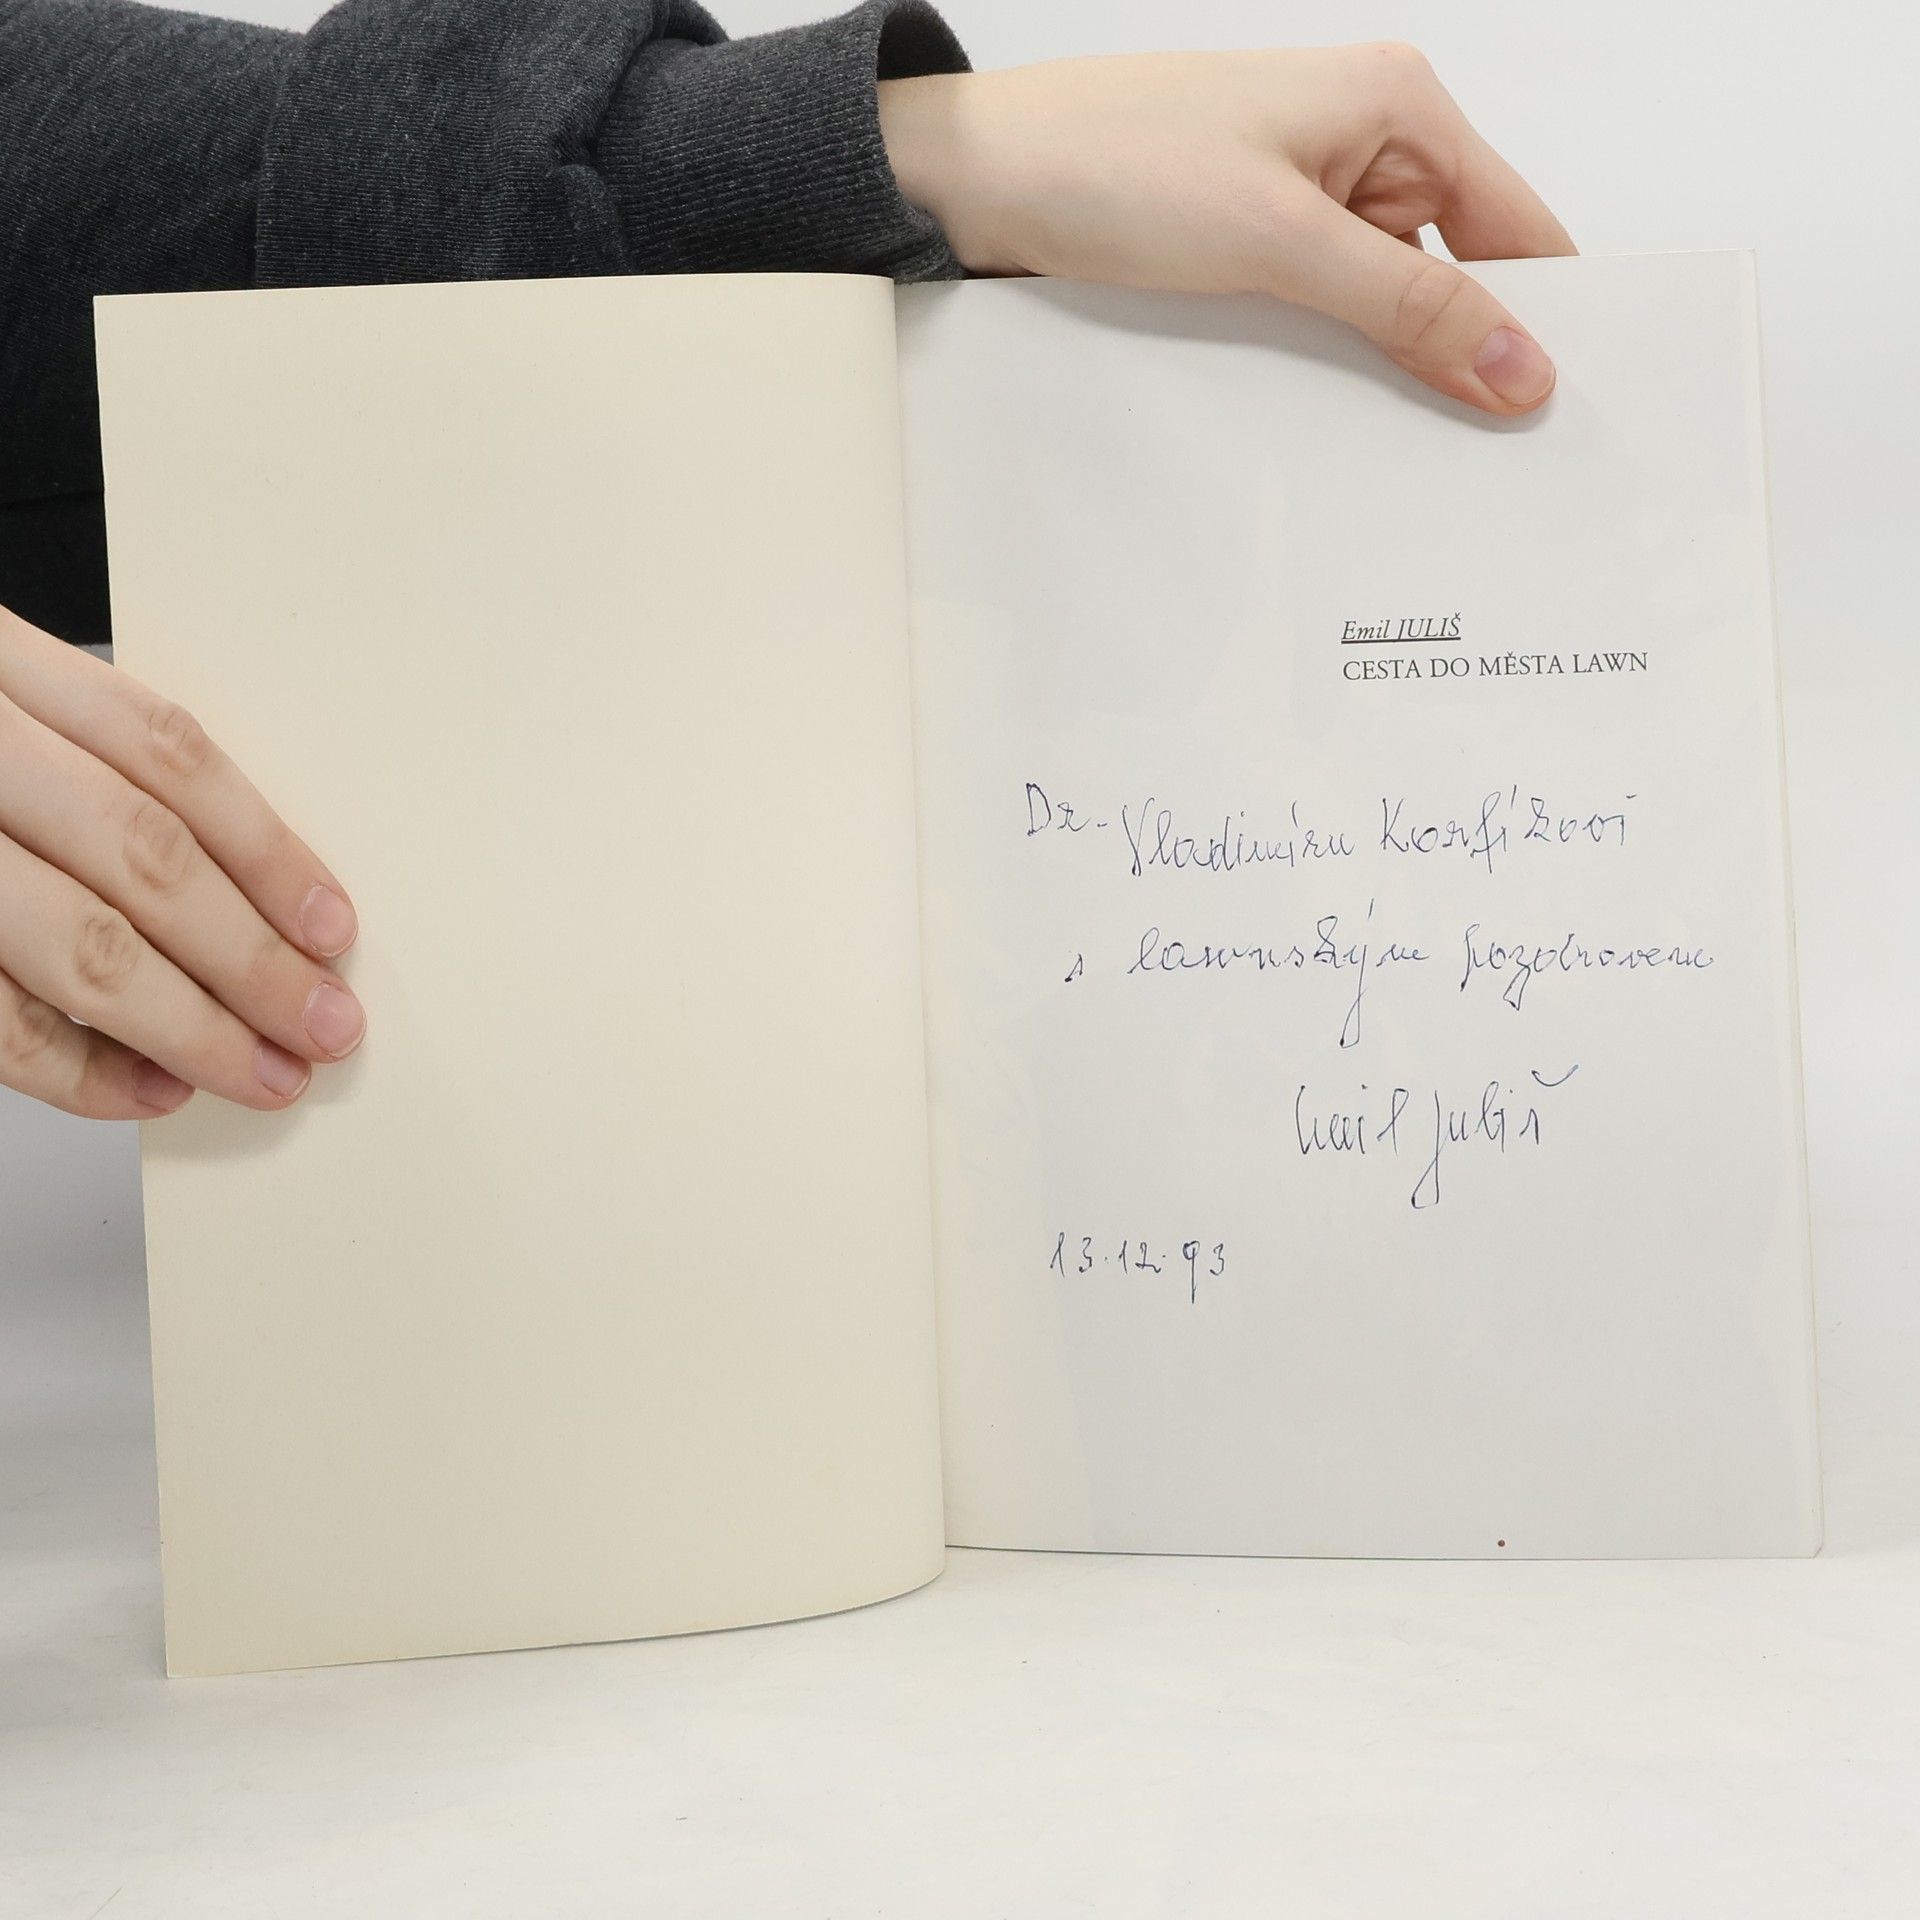 Emil JULIŠ
CESTA DO MĚSTA LAWN
Dr. Vladimíru Korfížovi
s lawnským pozdravem
Emil Juliš
13.12.93